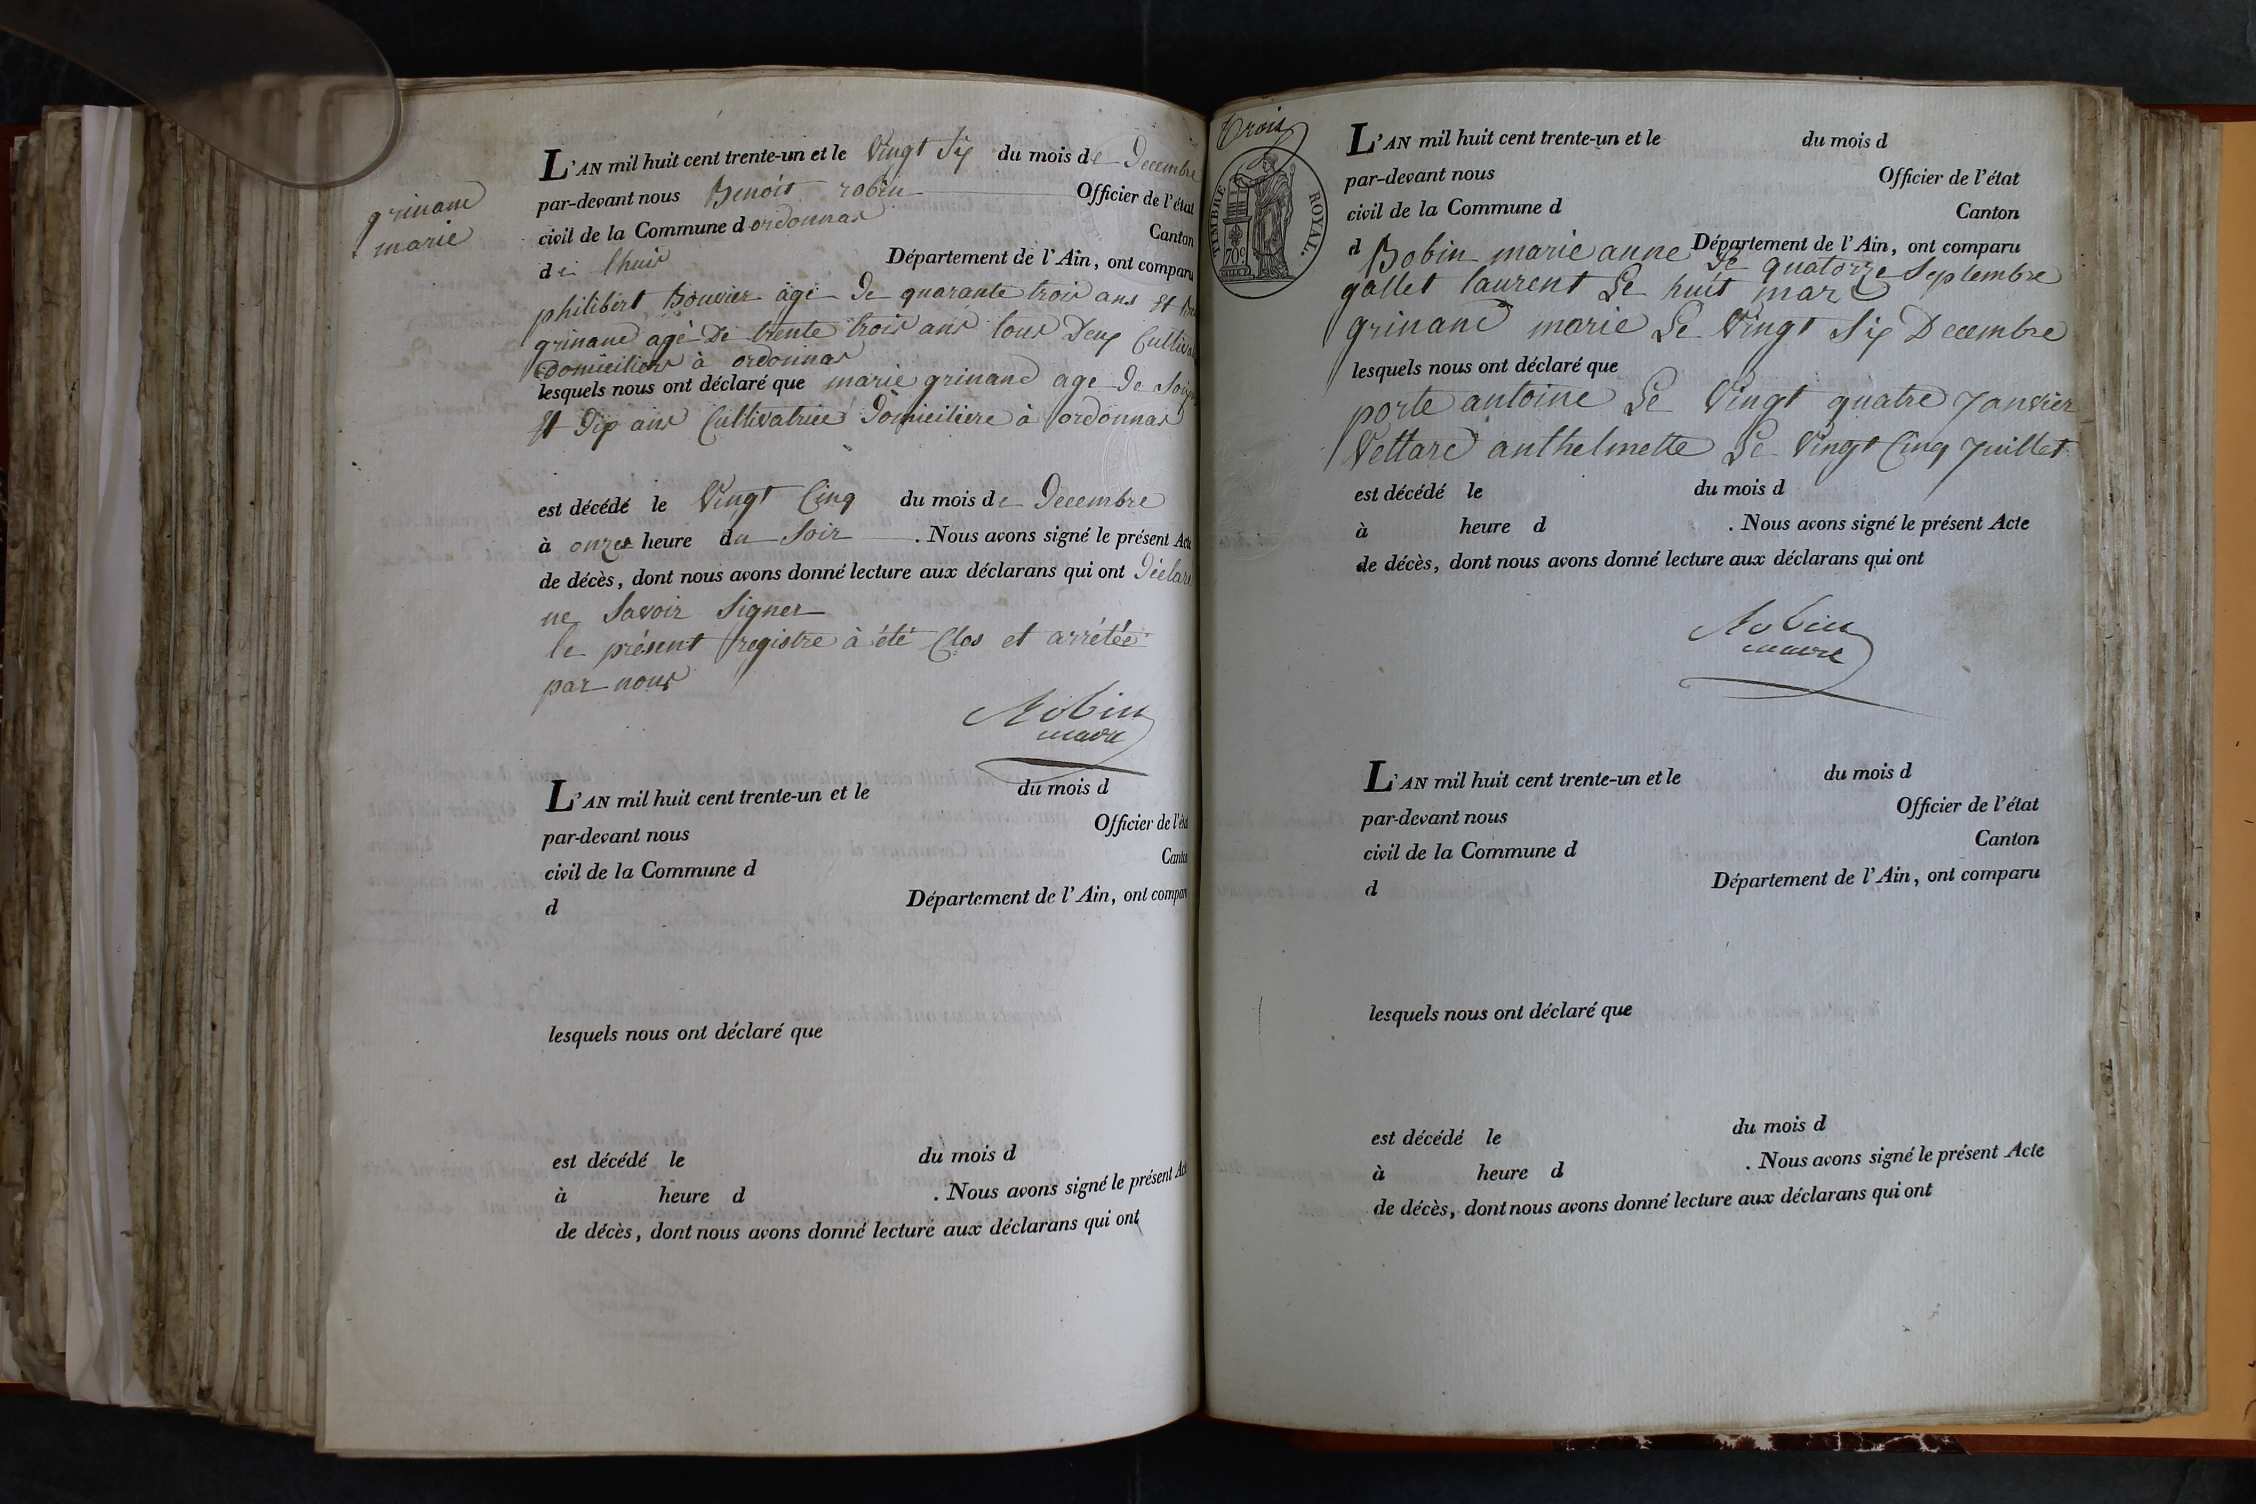 grinand
marie
L'AN mil huit cent trente-un et le Vingt Six du mois de Decembre
par-devant nous Benoit robin Officier de l'état
civil de la Commune d ordonnas Canton
de lhuis Département de l'Ain, ont comparu
philibert Bouvier agé de quarante trois ans et
grinand agé de trente trois ans tous deux
domiciliers à ordonnas
lesquels nous ont déclaré que marie grinand age de
et dix ans Cultivatrice domiciliere à ordonnas
est décédé le Vingt Cinq du mois de Decembre
à onze heure du Soir . Nous avons signé le présent Acte
de décès, dont nous avons donné lecture aux déclarans qui ont déclaré
ne Savoir Signer
le présent registre à été Clos et arrétée
par nous
Robin
maire
L'AN mil huit cent trente-un et le du mois d
par-devant nous Officier de l'état
civil de la Commune d Canton
d Département de l'Ain, ont comparu
lesquels nous ont déclaré que
est décédé le du mois d
à heure d . Nous avons signé le présent Acte
de décès, dont nous avons donné lecture aux déclarans qui ont
trois
TIMBRE ROYAL.
70c
L'AN mil huit cent trente-un et le du mois d
par-devant nous Officier de l'état
civil de la Commune d Canton
d Département de l'Ain, ont comparu
Bobin marie anne Le quatorze Septembre
gallet laurent Le huit mars
grinand marie Le Vingt Six Decembre
lesquels nous ont déclaré que
porte antoine Le Vingt quatre Janvier
Vettard anthelmette Le Vingt Cinq Juillet
est décédé le du mois d
à heure d . Nous avons signé le présent Acte
de décès, dont nous avons donné lecture aux déclarans qui ont
Robin
maire
L'AN mil huit cent trente-un et le du mois d
par-devant nous Officier de l'état
civil de la Commune d Canton
d Département de l'Ain, ont comparu
lesquels nous ont déclaré que
est décédé le du mois d
à heure d . Nous avons signé le présent Acte
de décès, dont nous avons donné lecture aux déclarans qui ont